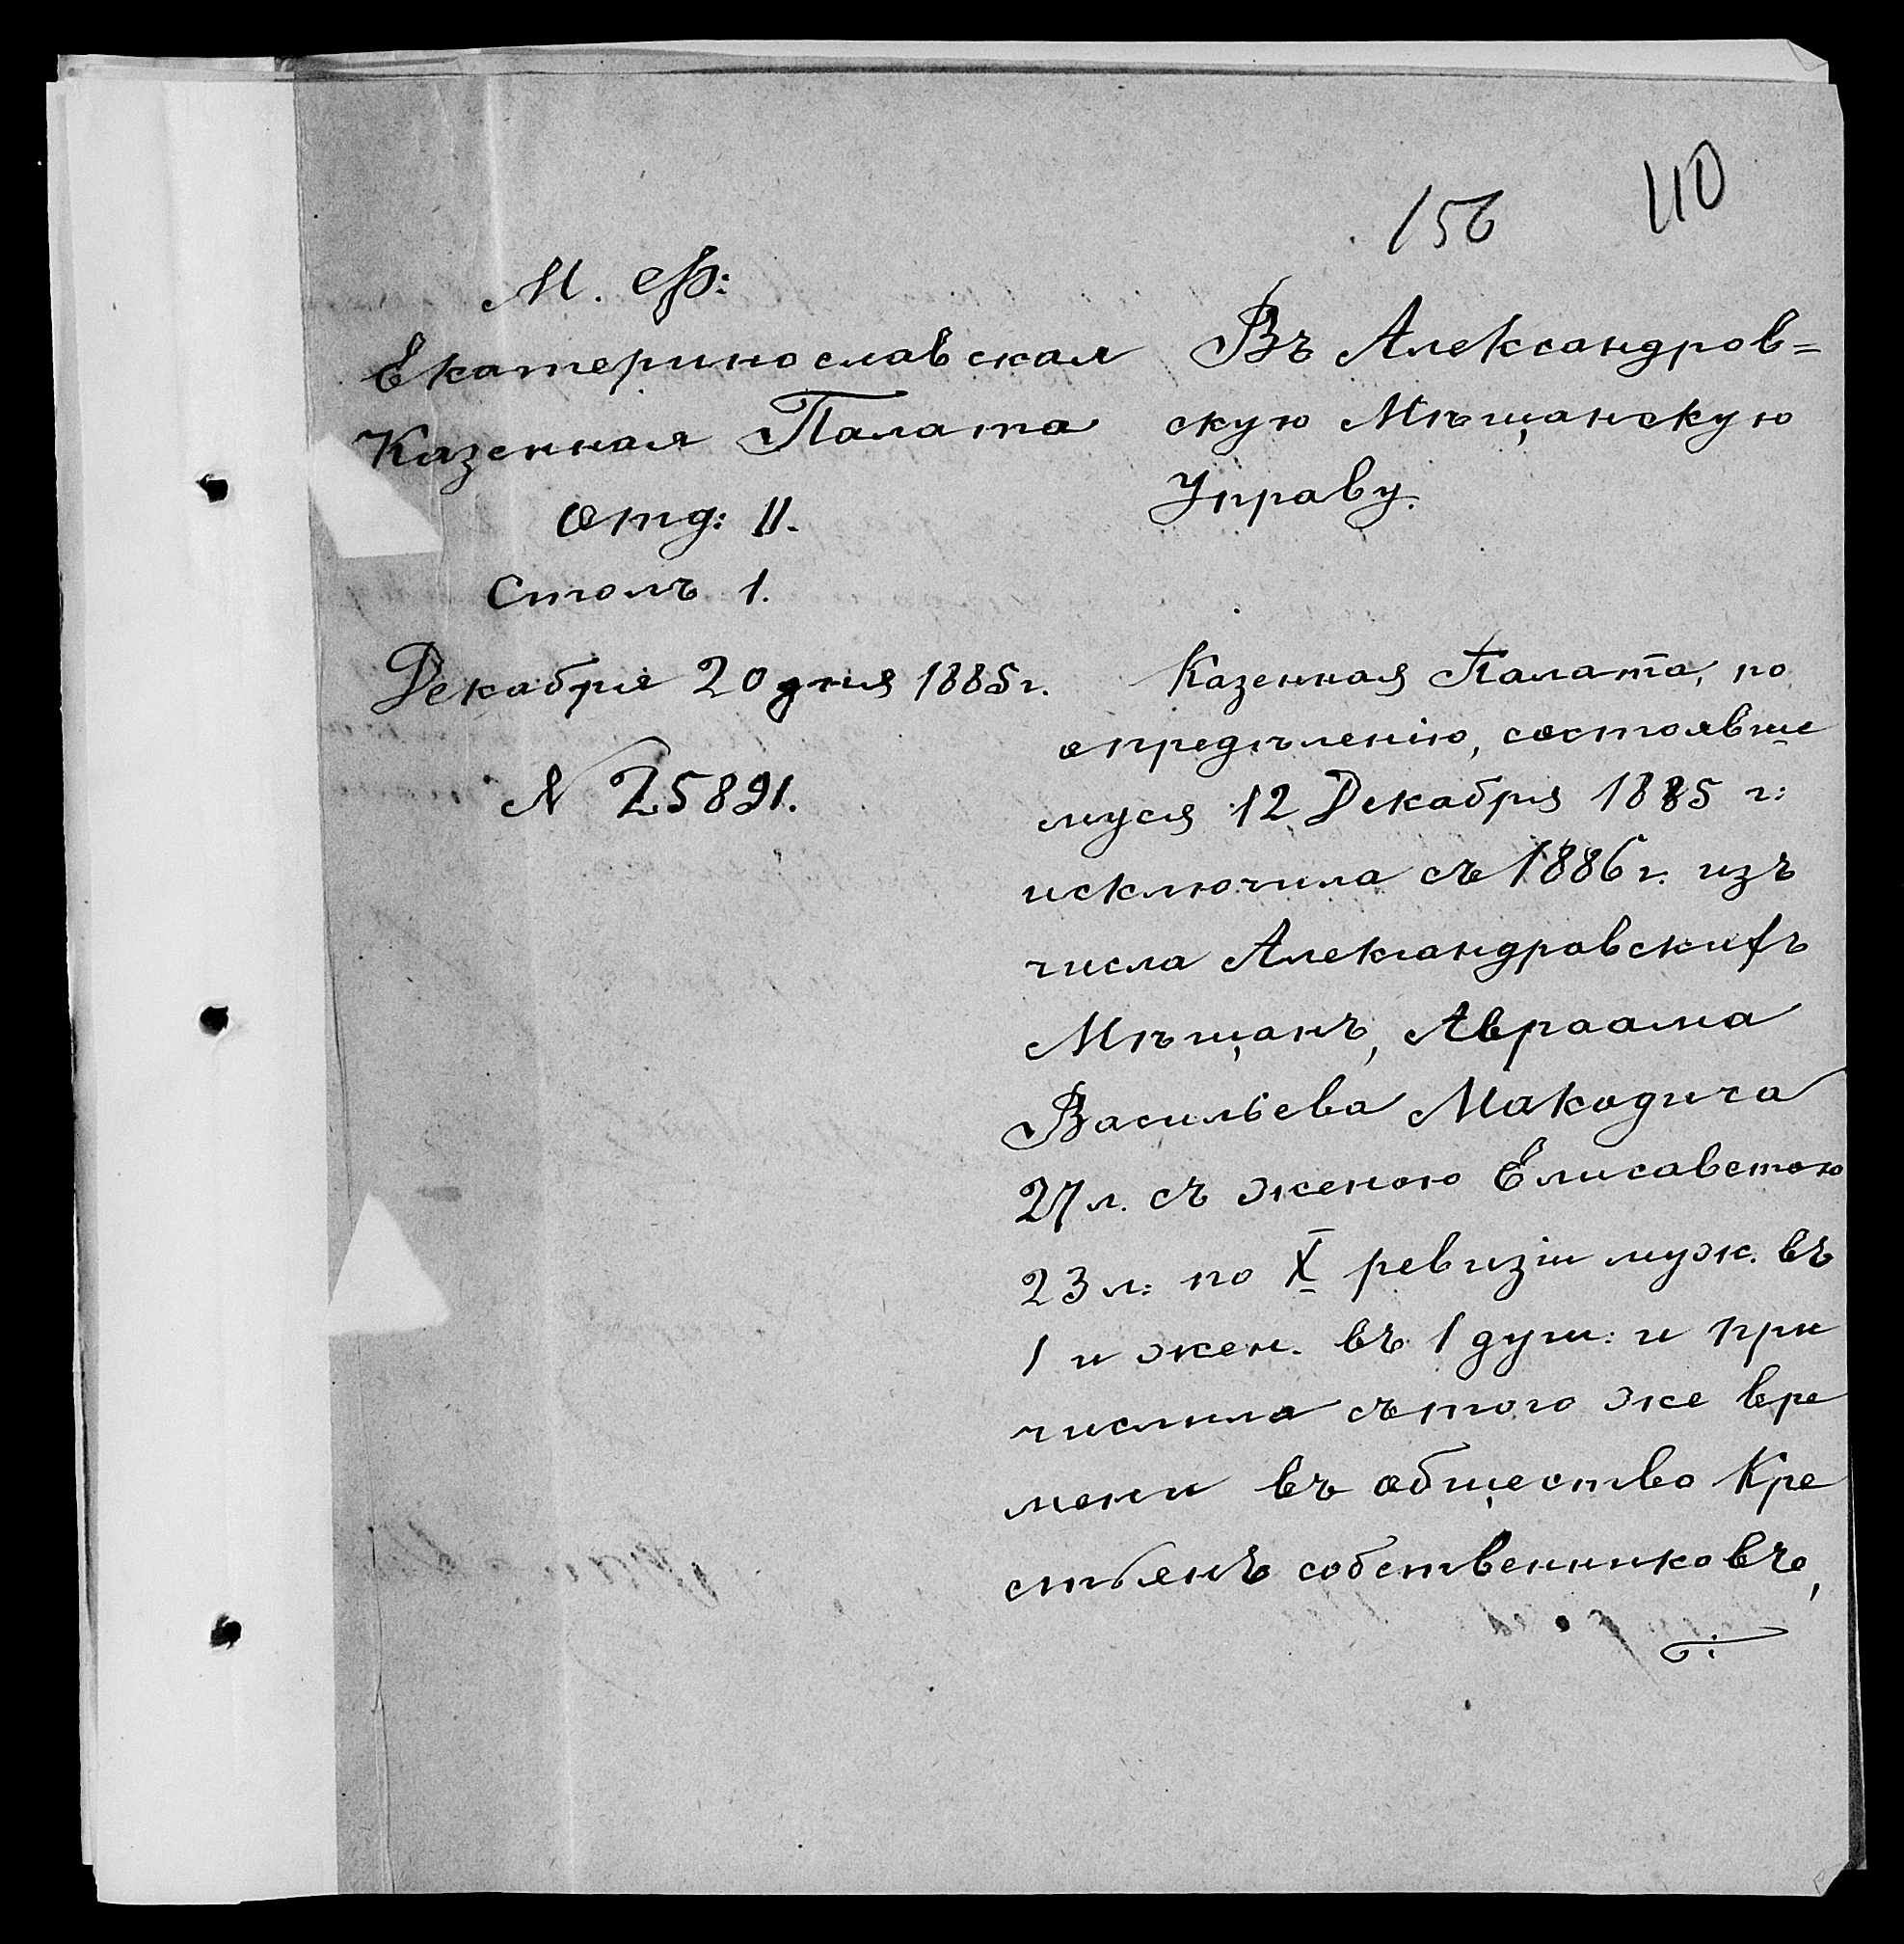 156 110
М. Ф:
Екатеринославская
Казенная Палата
Отд: II.
Столъ 1.
Декабря 20 дня 1885 г.
N 25891.
Въ Александров=
скую Мѣщанскую
Управу.
Казенная Палата, по
опредѣленію, состоявше
муся 12 Декабря 1885 г:
исключила съ 1886 г. изъ
числа Александровскихъ
Мѣщанъ, Авраама
Васильева Макодича
27 л. съ женою Елисаветою
23 л: по X ревизіи муж. въ
1 и жен. въ 1 душ: и при
числила съ того же вре
мени въ общество Кре
стьянъ собственниковъ,